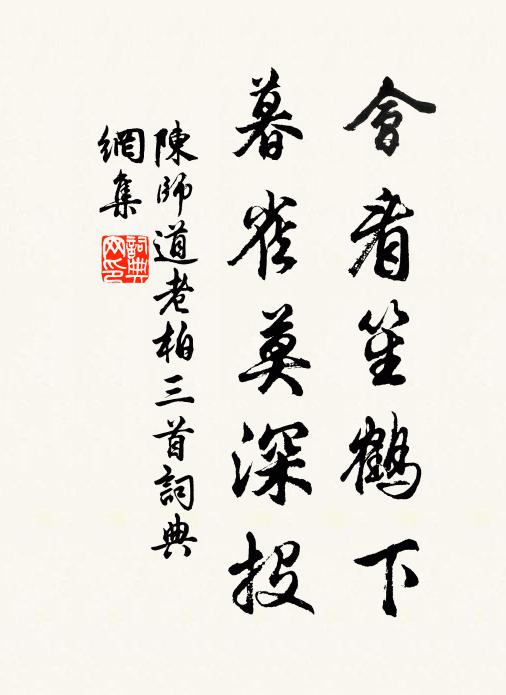 會看笙鶴下
暮雀莫深投
陳師道老柏三首詞典
網集
詞典
网印